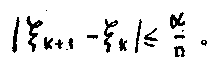 |ξₖ₊₁ - ξₖ| ≤ α/n 。